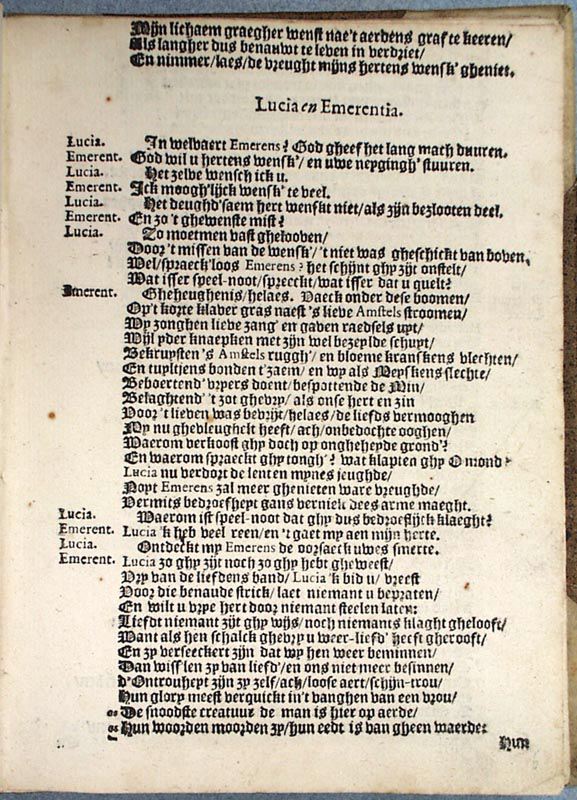 Mijn lichaem graegher wenst nae't aerdens graf te keeren/
Als langher dus benauwt te leven in verdriet/
En nimmer/laes/de vreught mijns hertens wensk' gheniet.
Lucia en Emerentia.
Lucia. In welvaert Emerens? God gheef het lang mach duuren.
Emerent. God wil u hertens wensk'/ en uwe neygingh' stuuren.
Lucia. Het zelve wensch ick u.
Emerent. Ick moogh'lijck wensk' te veel.
Lucia. Het deughd'saem hert wenskt niet/als zijn bezlooten deel.
Emerent. En zo 't ghewenste mist?
Lucia. Zo moetmen vast ghelooven/
Door 't missen van de wensk'/ 't niet was gheschickt van boven.
Wel/spraeck'loos Emerens? het schijnt ghy zijt onstelt/
Wat isser speel-noot/spreeckt/wat isser dat u quelt?
Emerent. Gheheughenis/helaes. Vaeck onder dese boomen/
Op't korte klaver gras naest 's lieve Amstels stroomen/
Wy zonghen lieve zang' en gaven raedsels uyt/
Wijl yder knaepken met zijn wel bezeylde schuyt/
Bekruysten 's Amstels ruggh'/ en bloeme kranskens vlechten/
En tuyltjens bonden t'zaem/ en wy als Meyskens slechte/
Beboertend' vryers doent/bespottende de Min/
Belaghtend' 't zot ghevry/ als onse hert en zin
Voor 't lieven was bevrijt/helaes/de liefds vermooghen
My nu ghevleughelt heeft/ach/onbedochte ooghen/
Waerom verkoost ghy doch op ongheheyde grond'?
En waerom spraeckt ghy tongh'? wat klapten ghy O mond?
Lucia nu verdort de lenten mynes jeughde/
Noyt Emerens zal meer ghenieten ware vreughde/
Vermits bedroefheyt gans vernielt dees arme maeght.
Lucia. Waerom ist speel-noot dat ghy dus bedroeflijck klaeght?
Emerent. Lucia 'k heb veel reen/en 't gaet my aen mijn herte.
Lucia. Ontdeckt my Emerens de oorsaeck uwes smerte.
Emerent. Lucia zo ghy zijt noch zo ghy hebt gheweest/
Vry van de liefdens band/ Lucia 'k bid u/ vreest
Voor die benaude strick/ laet niemant u bepraten/
En wilt u vrye hert door niemant steelen laten:
Liefdt niemant zijt ghy wijs/noch niemants klaght ghelooft/
Want als hen schalck ghevry u weer-liefd' heeft gherooft/
En zy verseeckert zijn dat wy hen weer beminnen/
Dan wiss'len zy van liefd'/en ons niet meer besinnen/
d'Ontrouheyt zijn zy zelf/ach/loose aert/schijn-trou/
Hun glory meest verquickt in't vanghen van een vrou/
De snoodste creatuur de man is hier op aerde/
Hun woorden moorden zy/hun eedt is van gheen waerde:
Hun